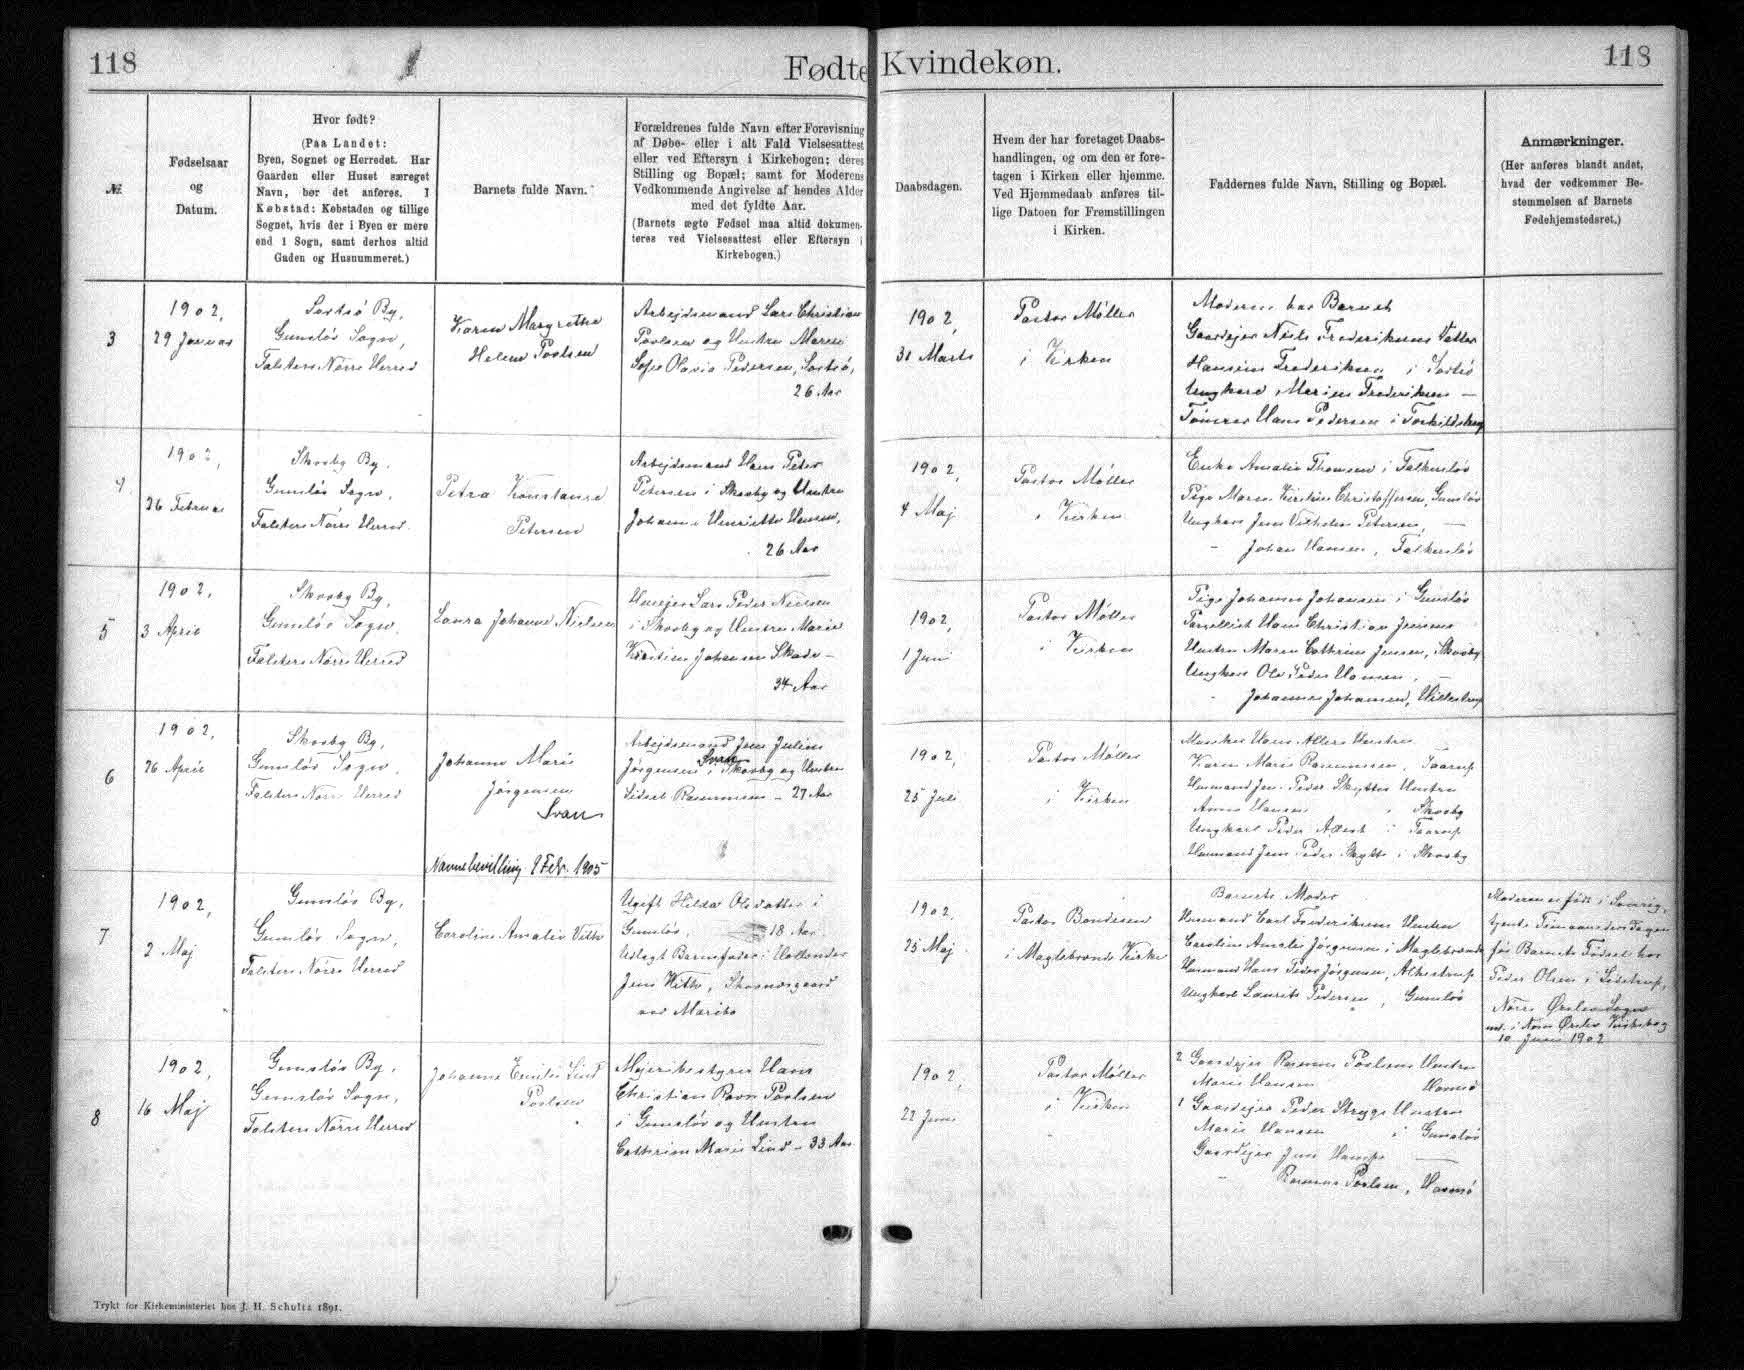 118
Fødte Kvindekøn.
118
№
Fødselsaar
og
Datum.
Hvor født?
(Paa Landet:
Byen, Sognet og Herredet. Har
Gaarden eller Huset særeget
Navn, bør det anføres. I
Købstad: Købstaden og tillige
Sognet, hvis der i Byen er mere
end 1 Sogn, samt derhos altid
Gaden og Husnummeret.)
Barnets fulde Navn.
Forældrenes fulde Navn efter Forevisning
af Døbe- eller i alt Fald Vielsesattest
eller ved Eftersyn i Kirkebogen; deres
Stilling og Bopæl; samt for Moderens
Vedkommende Angivelse af hendes Alder
med det fyldte Aar.
(Barnets ægte Fødsel maa altid dokumen-
teres ved Vielsesattest eller Eftersyn i
Kirkebogen.)
Daabsdagen.
Hvem der har foretaget Daabs-
handlingen, og om den er fore-
tagen i Kirken eller hjemme.
Ved Hjemmedaab anføres til-
lige Datoen for Fremstillingen
i Kirken.
Faddernes fulde Navn, Stilling og Bopæl.
Anmærkninger.
(Her anføres blandt andet,
hvad der vedkommer Be-
stemmelsen af Barnets
Fødehjemstedsret.)
3
1902,
29 Januar
Sortsø By,
Gunsløv Sogn,
Falsters Nørre Herred
Karen Margrethe
Helene Poulsen
Arbejdsmand Lars Christian
Poulsen og Hustru Maren
Sofie Olavia Pedersen, Sortsø,
26 Aar
1902,
31 Marts
Pastor Møller
i Kirken
Moderen bar Barnet
Gaardejer Niels Frederiksens Datter
Hansine Frederiksen i Sortsø
Ungkarl Marius Frederiksen —
Tømrer Hans Pedersen i
4
1902,
26 Februar
Skovby By,
Gunsløv Sogn,
Falsters Nørre Herred.
Petra Konstance
Petersen
Arbejdsmand Hans Peter
Petersen i Skovby og Hustru
Johanne Henriette Hansen,
26 Aar
1902,
4 Maj
Pastor Møller
i Kirken
Enke Amalie Thomsen i Falkersløv
Pige Maren Kirstine Christoffersen, Gunsløv
Ungkarl Jens Vilhelm Petersen, —
- Johan Hansen, Falkersløv
5
1902,
3 April
Skovby By,
Gunsløv Sogn,
Falsters Nørre Herred
Laura Johanne Nielsen
Husejer Lars Peder Nielsen
i Skovby og Hustru Marie
Kirstine Johansen Skade -
34 Aar
1902,
1 Juni
Pastor Møller
i Kirken
Pige Johanne Johansen i Gunsløv
Parcellist Hans Christian Jensens
Hustru Maren Cathrine Jensen, Skovby
Ungkarl Ole Peder Hansen, —
- Johannes Johansen,
6
1902,
26 April
Skovby By,
Gunsløv Sogn,
Falsters Nørre Herred
Johanne Marie
Jørgensen
Svan
Navnebevilling 9 Feb. 1905
Arbejdsmand Jens Julius
Svan
Jørgensen i Skovby og Hustru
Sidsel Rasmussen - 27 Aar
1902,
25 Juli
Pastor Møller
i Kirken
Hans Hustru
Karen Marie Rasmussen, Taarup
Husmand Jens Peder Skyttes Hustru
Anna Hansen i Skovby
Ungkarl Peder i Taarup
Husmand Jens Peder Skytte i Skovby
7
1902,
2 Maj
Gunsløv By,
Gunsløv Sogn,
Falsters Nørre Herred
Caroline Amalie Vith
Ugift Hilda Olsdatter i
Gunsløv, 18 Aar
Udlagt Barnefader: Hollænder
Jens Vith, Skovnæsgaard
ved Maribo
1902,
25 Maj
Pastor Bondesen
i Maglebrænde Kirke
Barnets Moder
Husmand Carl Frederiksens Hustru
Caroline Amalie Jørgensen i Maglebrænde
Husmand Hans Peder Jørgensen, Alkestrup
Ungkarl Laurits Pedersen, Gunsløv
Moderen er født i Sverig,
tjente Timaanedersdagen
før Barnets Fødsel hos
Peder Olsen i
Nørre Ørslev Sogn
i Nørre Ørslev Kirkebog
10 Juni 1902
8
1902,
16 Maj
Gunsløv By,
Gunsløv Sogn,
Falsters Nørre Herred
Johanne Emilie Lind
Poulsen
Mejeribestyrer Hans
Christian Ravn Poulsen
i Gunsløv og Hustru
Cathrine Marie Lind - 33 Aar
1902,
22 Juni
Pastor Møller
i Kirken
2 Gaardejer Rasmus Poulsens Hustru
Marie Hansen
1 Gaardejer Peder Strygs Hustru
Marie Hansen i Gunsløv
Gaardejer Jens —
- Rasmus Poulsen,
Trykt for Kirkeministeriet hos J. H. Schultz 1891.